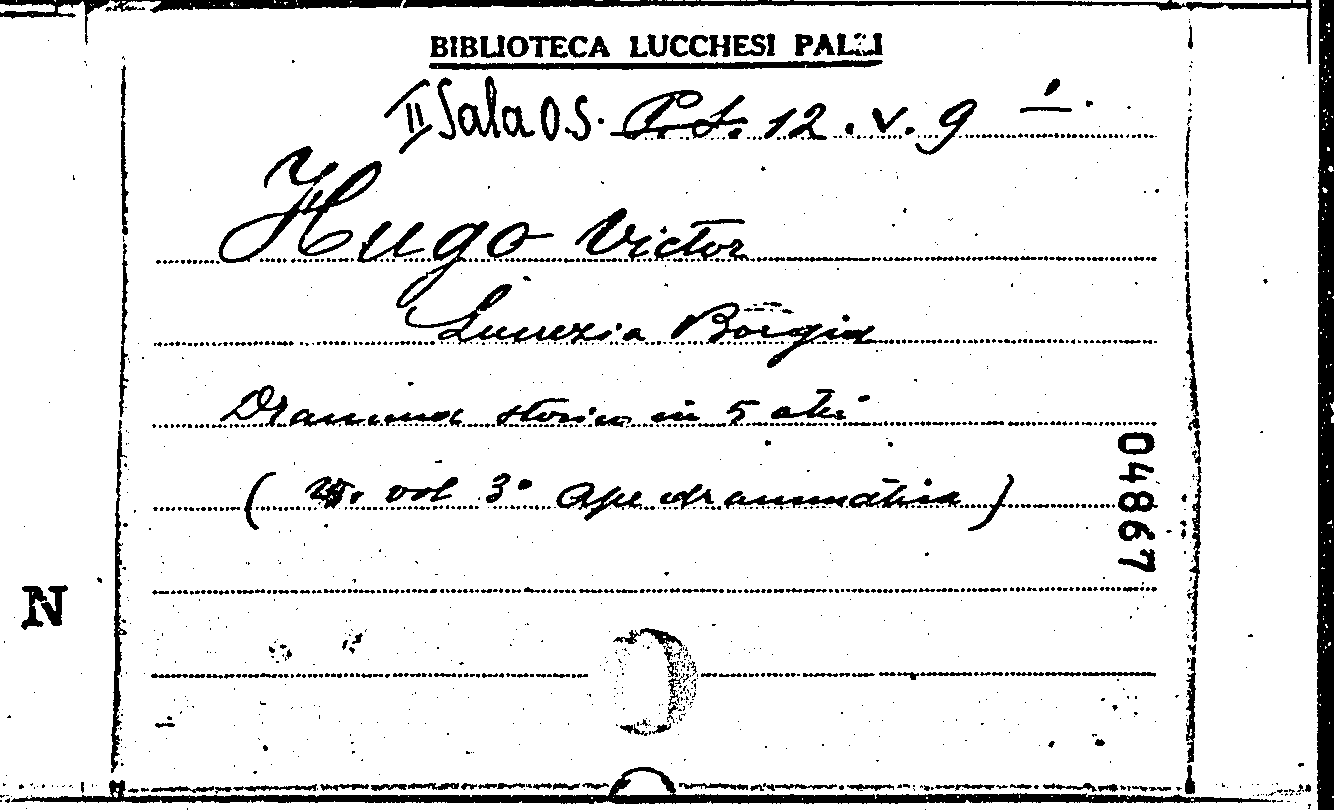 BIBLIOTECA LUCCHESI PALLI
II Sala O.S. P.S. 12. V. 9
Hugo Victor
Lucrezia Borgia
Dramma storico in 5 atti
( V. vol 3° Ape drammatica )
04867
N